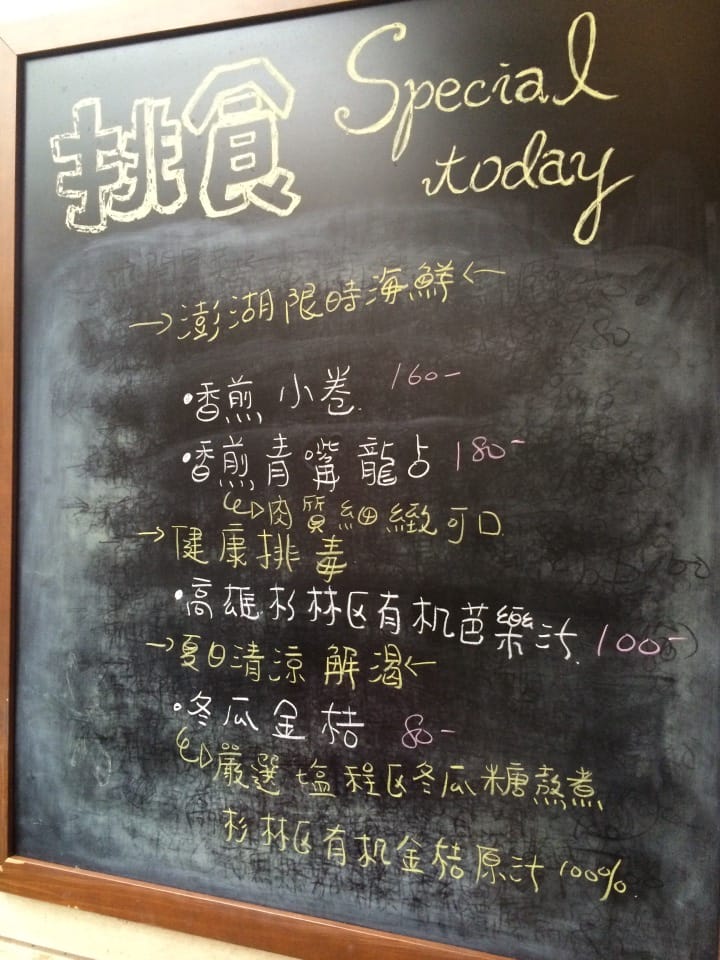 排食 Special
today
→澎湖限時海鮮←
•香煎小卷 160-
•香煎青嘴龍占 180-
↳肉質細緻可口
→健康排毒
•高雄杉林区有机芭樂汁 100-
→夏日清涼解渴←
•冬瓜金桔 80-
↳嚴選塩程区冬瓜糖熬煮
杉林区有机金桔原汁100%